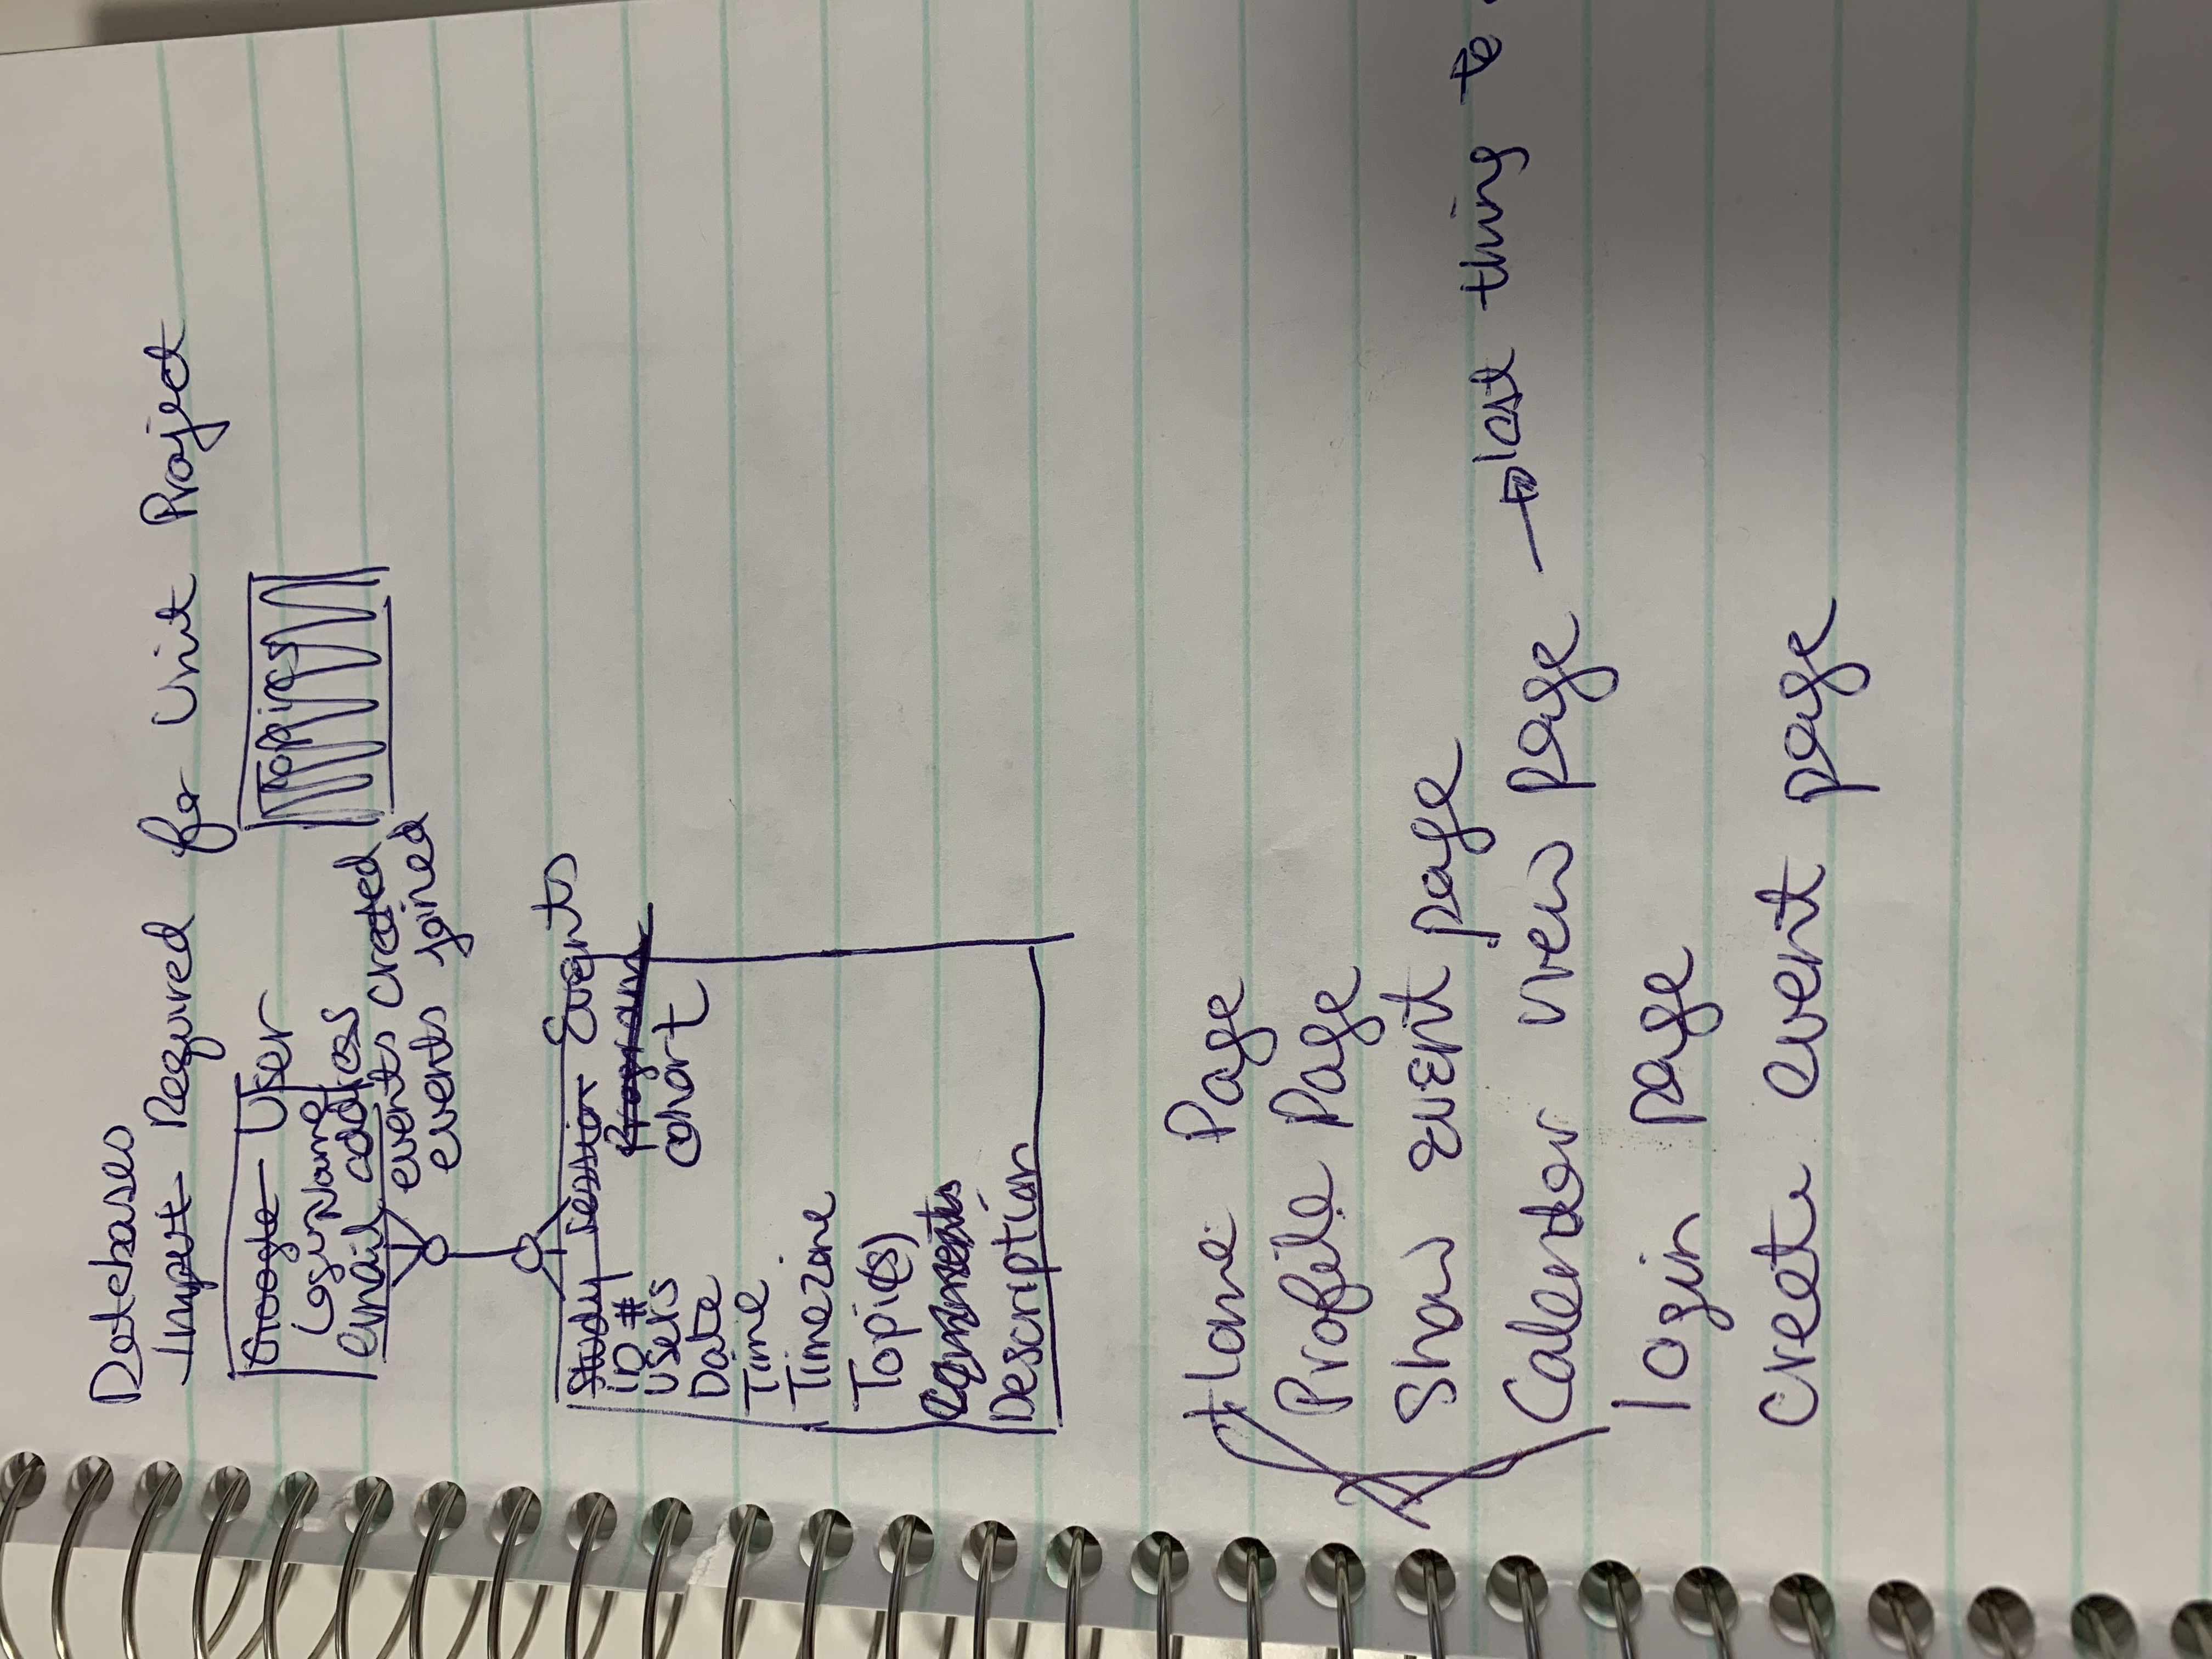 Databases
Input Required for Unit Project
Google User
Login Name
email address
events created
events joined
Topics
Study session Events
ID # Program
Users cohort
Date
Time
Timezone
Topic(s)
Comments
Description
Home Page
Profile Page
Show event page
Calender view page → last thing to
login page
create event page